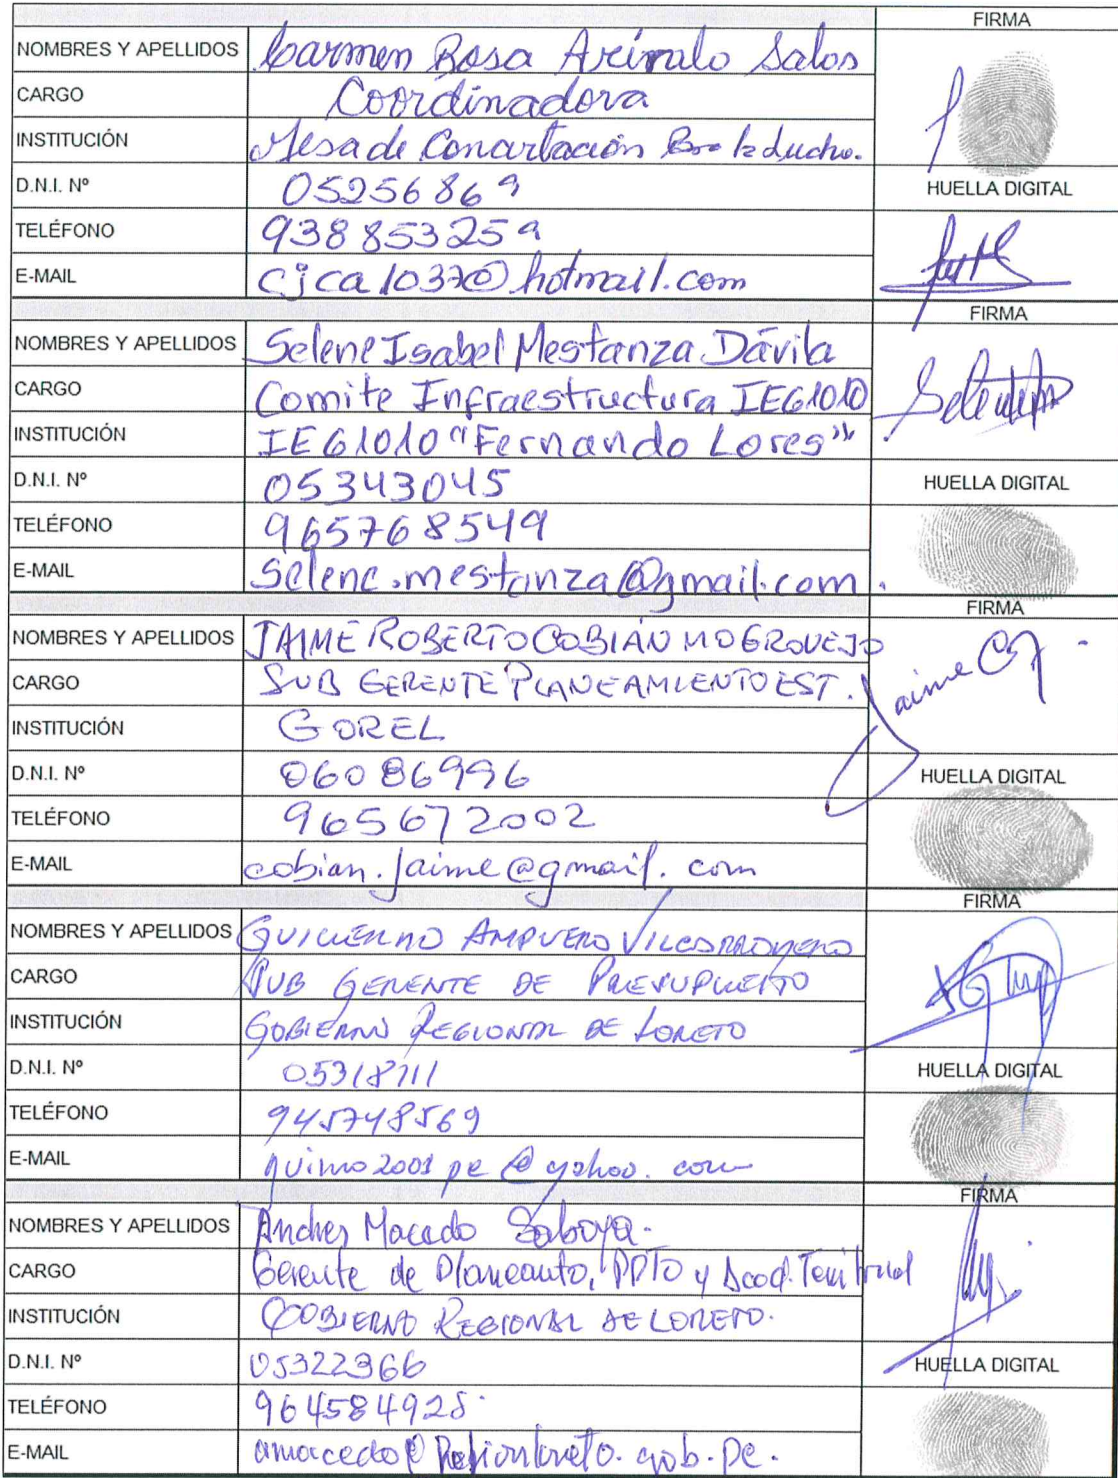 FIRMA
NOMBRES Y APELLIDOS Carmen Rosa Arévalo Salas
CARGO Coordinadora
INSTITUCIÓN Mesa de Concertación
D.N.I. Nº 05256869
HUELLA DIGITAL
TELÉFONO 938853259
E-MAIL cjca1037@hotmail.com
FIRMA
NOMBRES Y APELLIDOS Selene Isabel Mestanza Dávila
CARGO Comite Infraestructura IE61010
INSTITUCIÓN IE 61010 "Fernando Lores"
D.N.I. Nº 05343045
HUELLA DIGITAL
TELÉFONO 965768549
E-MAIL selene.mestanza@gmail.com.
FIRMA
NOMBRES Y APELLIDOS JAIME ROBERTO COBIÁN MOGROVEJO
CARGO SUB GERENTE PLANEAMIENTO EST.
INSTITUCIÓN GOREL
D.N.I. Nº 06086996
HUELLA DIGITAL
TELÉFONO 965672002
E-MAIL cobian.jaime@gmail.com
FIRMA
NOMBRES Y APELLIDOS GUILLERMO AMPUERO
CARGO SUB GERENTE DE PRESUPUESTO
INSTITUCIÓN GOBIERNO REGIONAL DE LORETO
D.N.I. Nº 05318711
HUELLA DIGITAL
TELÉFONO 945748569
E-MAIL guimo2001pe@yahoo.com
FIRMA
NOMBRES Y APELLIDOS Andres Macedo Saboya.
CARGO Gerente de Planeanto, PPTO y Acod. Territorial
INSTITUCIÓN GOBIERNO REGIONAL DE LORETO.
D.N.I. Nº 05322366
HUELLA DIGITAL
TELÉFONO 964584928
E-MAIL amacedo@regionloreto.gob.pe.